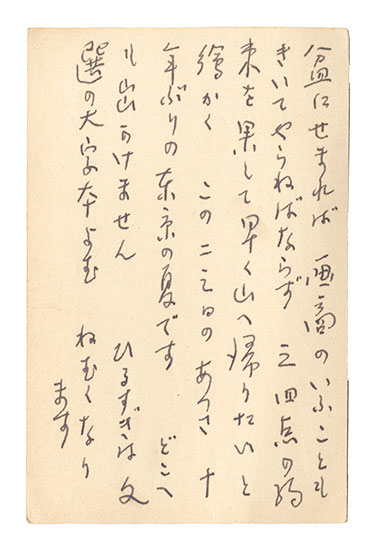 盆にせまれば　画商のいふことも
きいてやらねばならず　三四点の約
束を果して早く山へ帰りたいと
繪かく　この二三日のあつさ　十
年ぶりの東京の夏です　どこへ
も出かけません　ひるすぎは文
選の大字本よむ　ねむくなり
ます